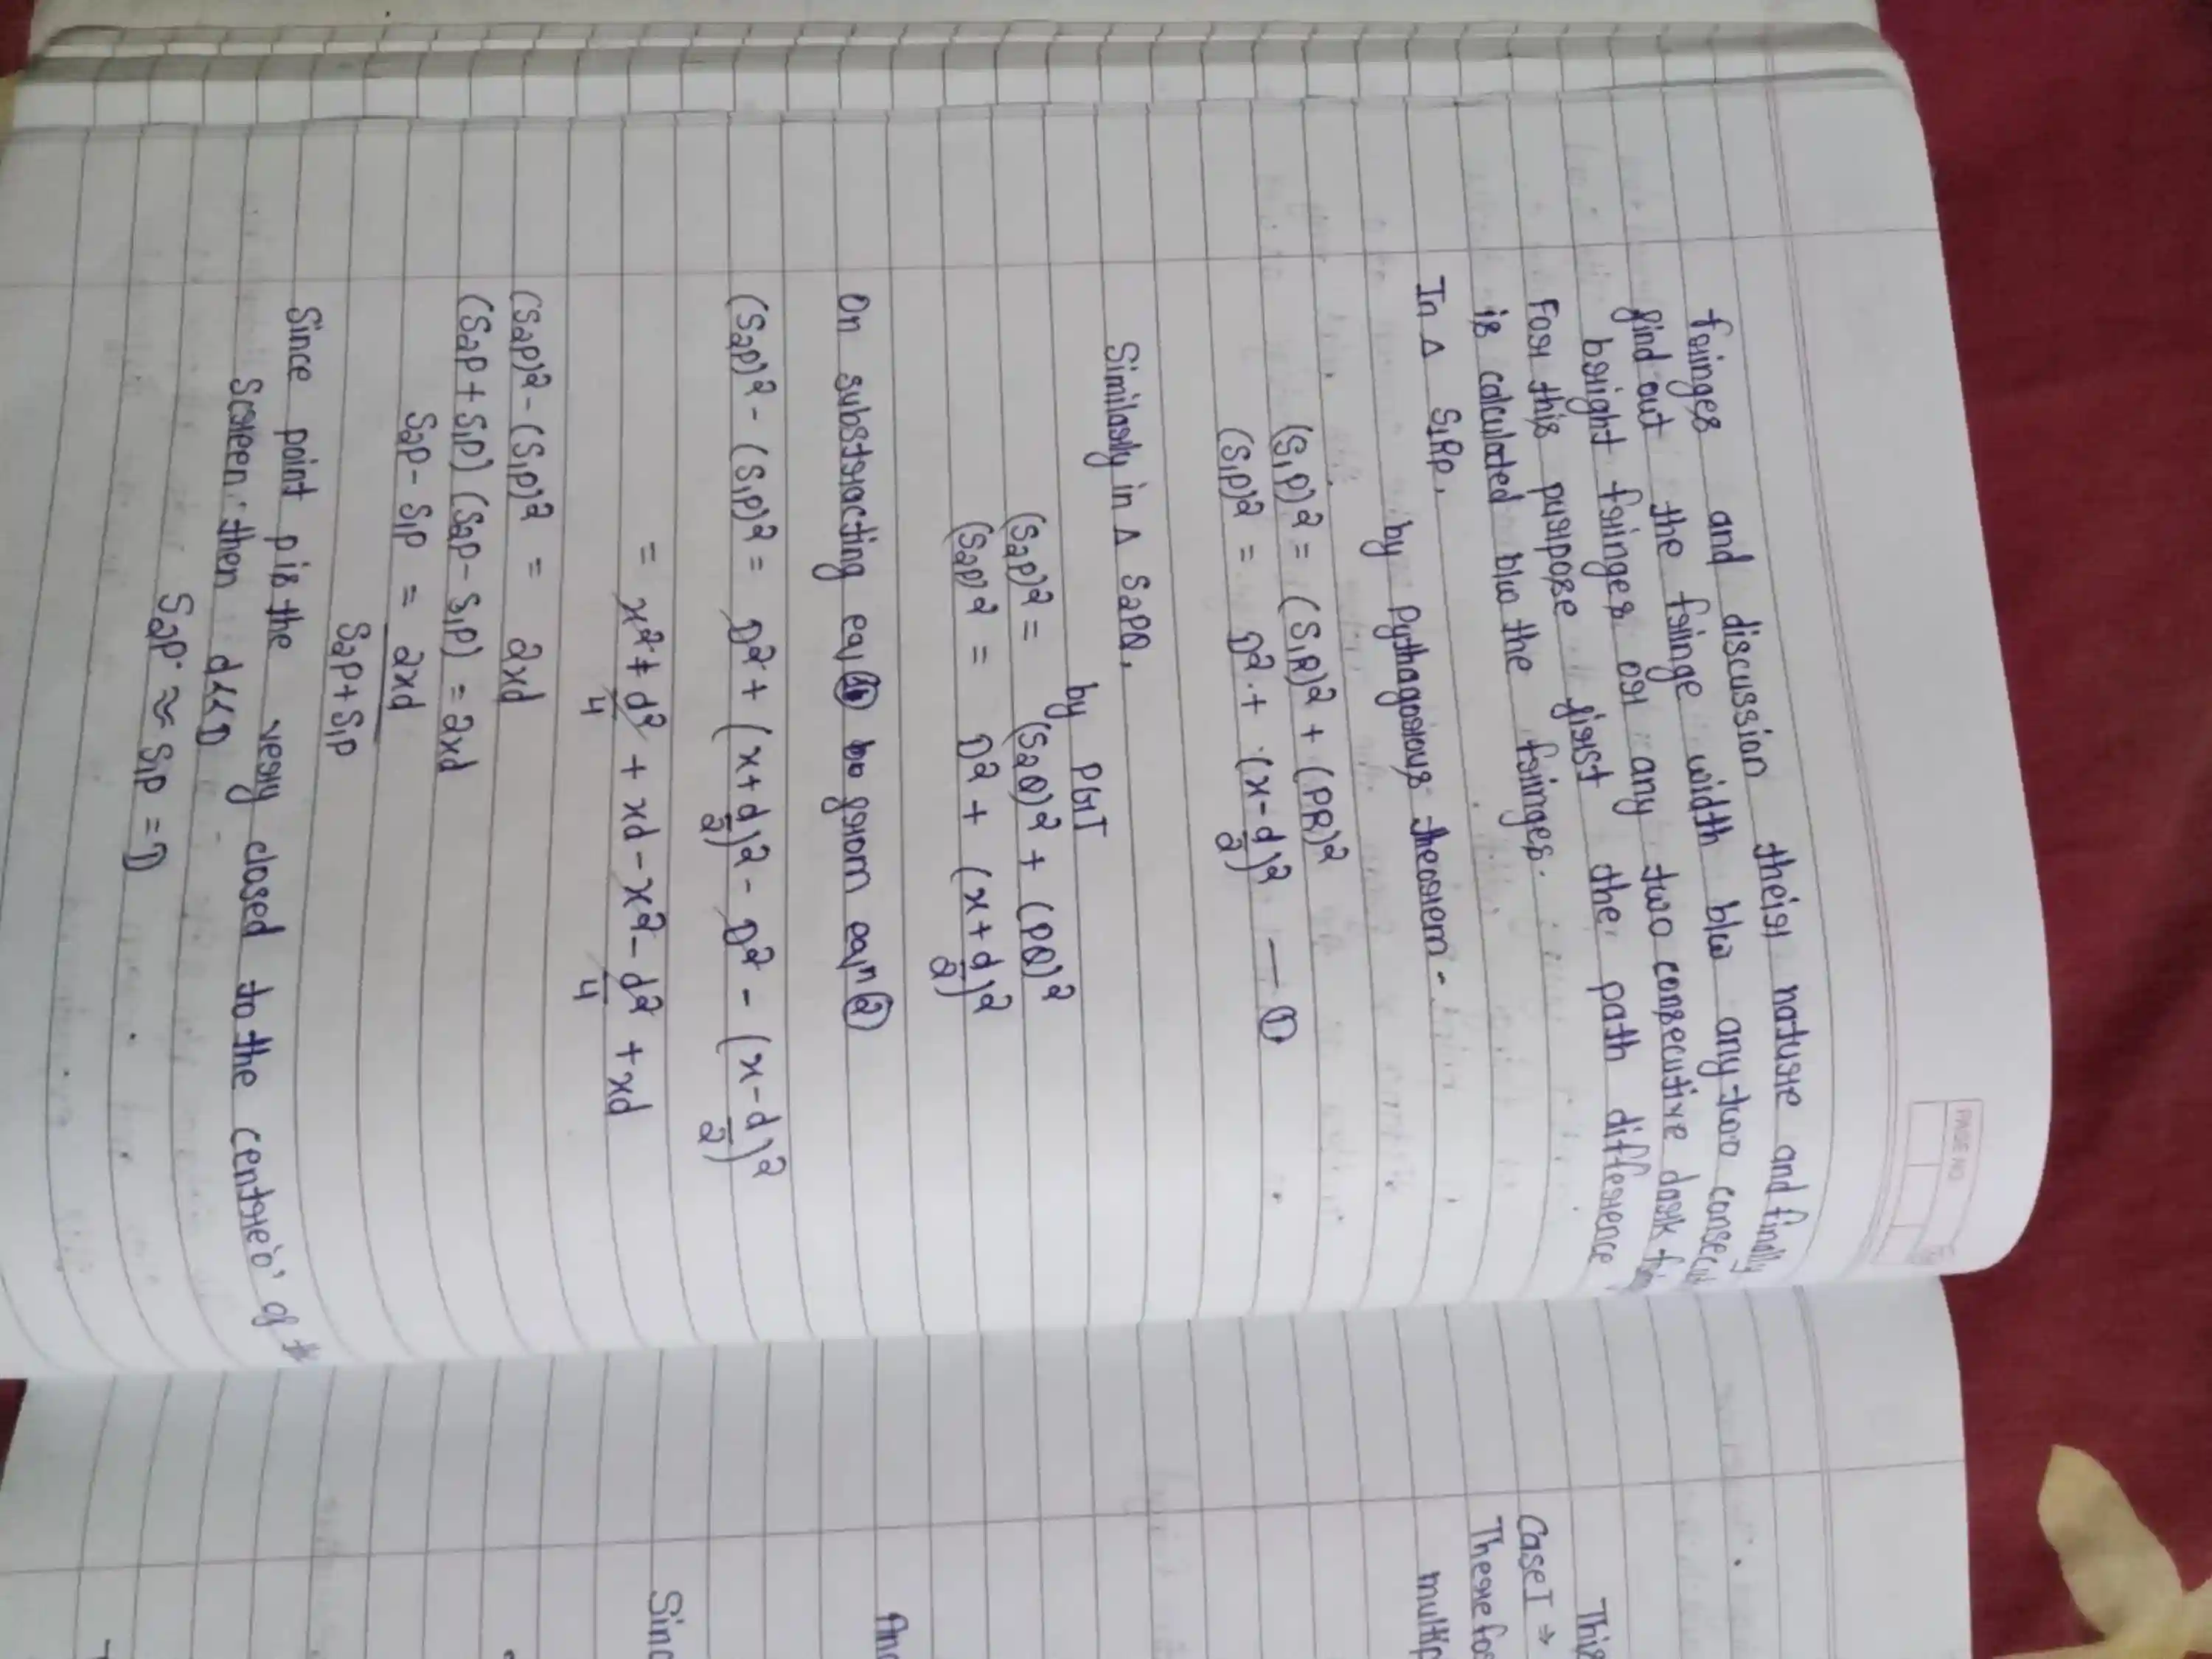 PAGE NO
fringes and discussion their nature and finally
find out the fringe width b/w any two consecu
bright fringes or any two consecutive dark
For this purpose first the path difference
is calculated b/w the fringes.
In Δ S1RP,
by Pythagorous theorem -
(S1P)² = (S1R)² + (PR)²
(S1P)² = D² + (x - d/2)² — ①
Similarly in Δ S2PQ,
by PGT
(S2P)² = (S2Q)² + (PQ)²
(S2P)² = D² + (x + d/2)²
On substracting eq ① grom eqn ②
(S2P)² - (S1P)² = D² + (x + d/2)² - D² - (x - d/2)²
= x² + d²/4 + xd - x² - d²/4 + xd
(S2P)² - (S1P)² = 2xd
(S2P + S1P) (S2P - S1P) = 2xd
S2P - S1P = 2xd
S2P + S1P
Since point p is the very closed to the centre 'o' of
Screen. then d<<D
S2P ≈ S1P = D
This
Case I ⇒
Therefor
multip
Anc
Sinc